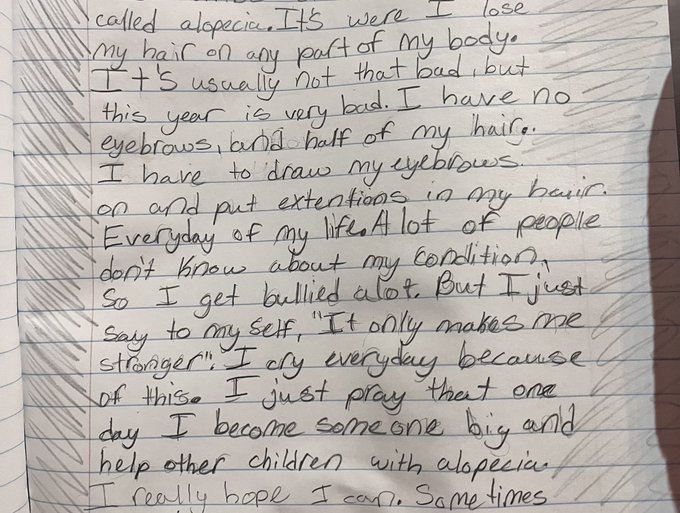 called alopecia. It's were I lose
my hair on any part of my body.
It's usually not that bad, but
this year is very bad. I have no
eyebrows, and half of my hair.
I have to draw my eyebrows.
on and put extentions in my hair.
Everyday of my life. A lot of people
don't know about my condition,
so I get bullied alot. But I just
say to my self, "It only makes me
stronger". I cry everyday because
of this. I just pray that one
day I become someone big and
help other children with alopecia.
I really hope I can. Sometimes